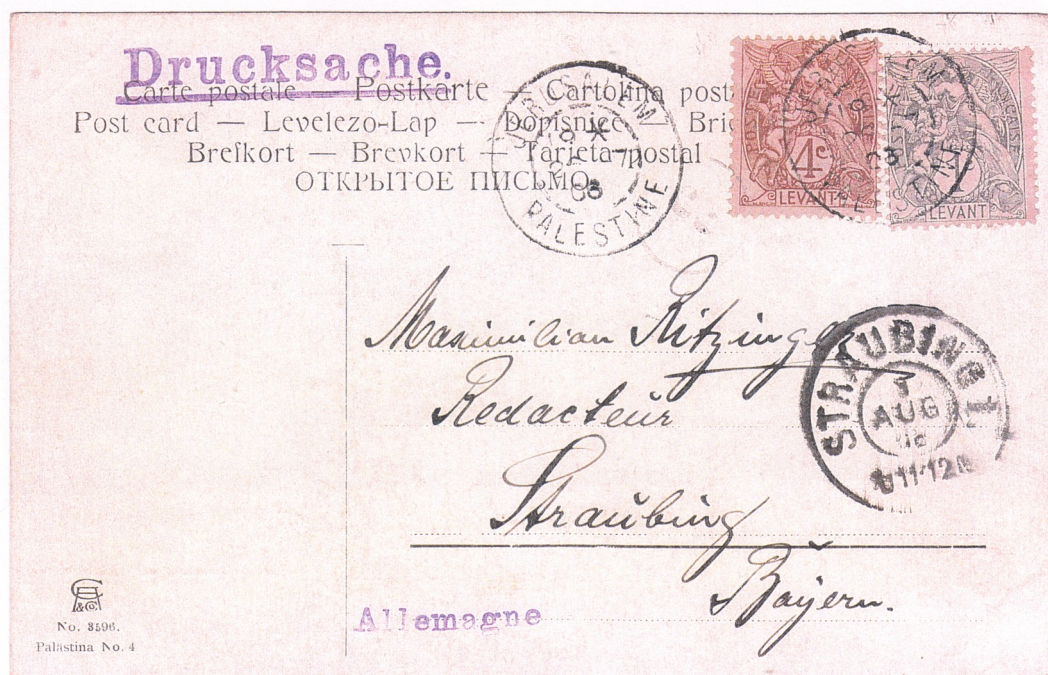 Drucksache.
Carte postale — Postkarte — Cartolina
Post card — Levelezo-Lap — Dopisnice —
Brefkort — Brevkort — Tarjeta postal
ОТКРЫТОЕ ПИСЬМО
JERUSALEM
PALESTINE
4c
LEVANT
LEVANT
Maximilian Ritzinger
Redacteur
Straubing
Bayern.
STRAUBING I.
AUG
Allemagne
& Co.
No. 3596.
Palästina No. 4